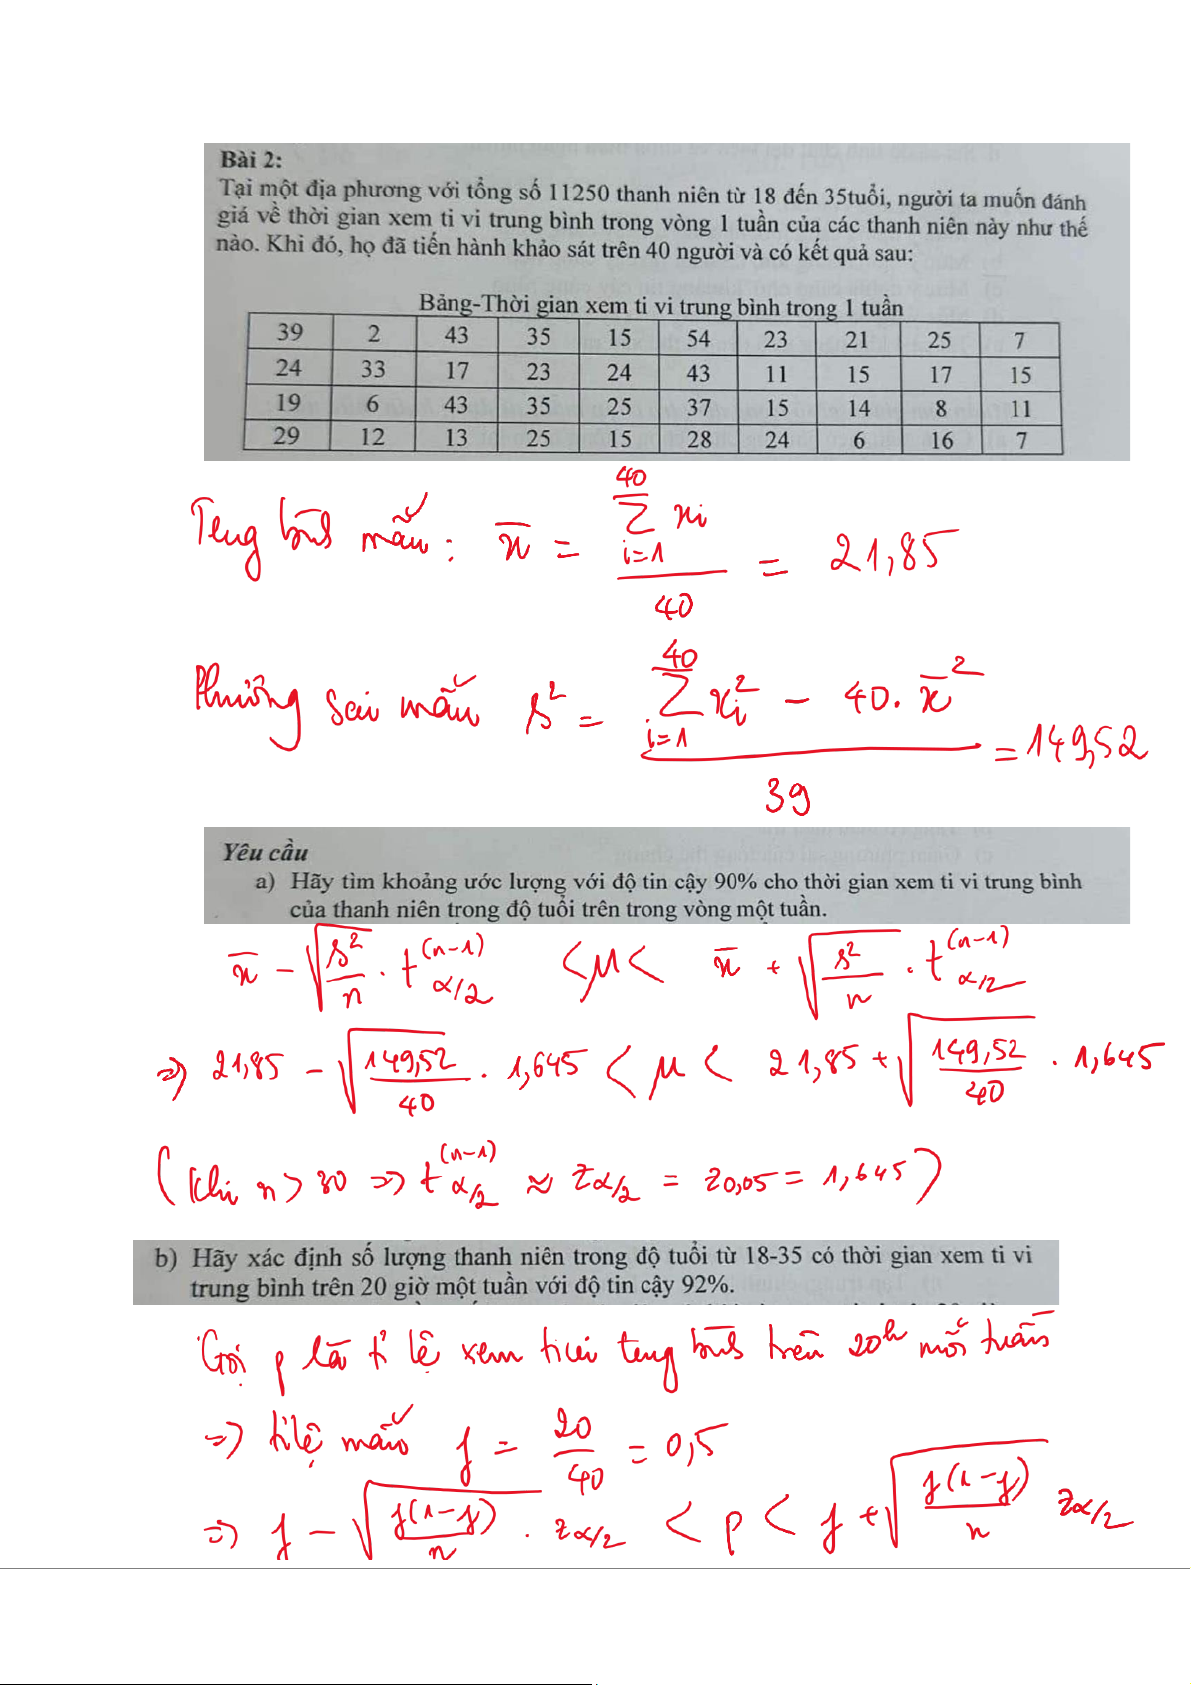 Bài 2:
Tại một địa phương với tổng số 11250 thanh niên từ 18 đến 35tuổi, người ta muốn đánh
giá về thời gian xem ti vi trung bình trong vòng 1 tuần của các thanh niên này như thế
nào. Khi đó, họ đã tiến hành khảo sát trên 40 người và có kết quả sau:
Bảng-Thời gian xem ti vi trung bình trong 1 tuần
39 2 43 35 15 54 23 21 25 7
24 33 17 23 24 43 11 15 17 15
19 6 43 35 25 37 15 14 8 11
29 12 13 25 15 28 24 6 16 7
Trung bình mẫu: x̄ = ∑_{i=1}^{40} xi / 40 = 21,85
Phương sai mẫu s² = (∑_{i=1}^{40} xi² − 40. x̄²) / 39 = 149,52
Yêu cầu
a) Hãy tìm khoảng ước lượng với độ tin cậy 90% cho thời gian xem ti vi trung bình
của thanh niên trong độ tuổi trên trong vòng một tuần.
x̄ − √(s²/n) . t_{α/2}^{(n−1)} < μ < x̄ + √(s²/n) . t_{α/2}^{(n−1)}
⇒ 21,85 − √(149,52/40) . 1,645 < μ < 21,85 + √(149,52/40) . 1,645
(Khi n > 30 ⇒ t_{α/2}^{(n−1)} ≈ z_{α/2} = z_{0,05} = 1,645)
b) Hãy xác định số lượng thanh niên trong độ tuổi từ 18-35 có thời gian xem ti vi
trung bình trên 20 giờ một tuần với độ tin cậy 92%.
Gọi p là tỉ lệ xem tivi trung bình trên 20h mỗi tuần
⇒ tỉ lệ mẫu f = 20/40 = 0,5
⇒ f − √(f(1−f)/n) . z_{α/2} < p < f + √(f(1−f)/n) z_{α/2}